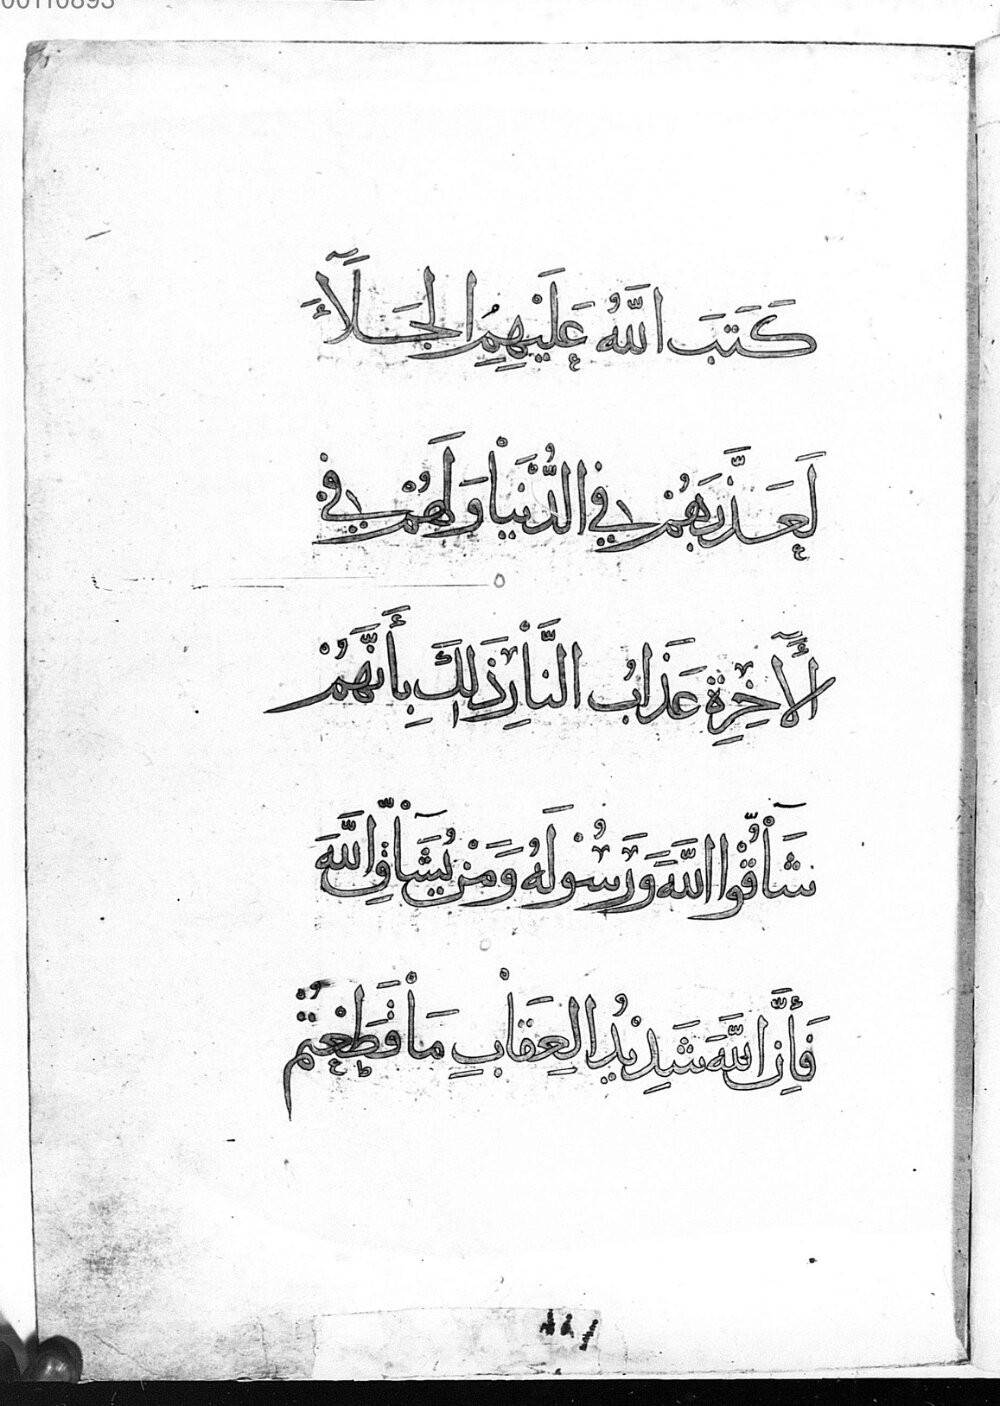 00110893
كَتَبَ اللَّهُ عَلَيْهِمُ الْجَلَآءَ
لَعَذَّبَهُمْ فِي الدُّنْيَا وَلَهُمْ فِي
الْأَخِرَةِ عَذَابُ النَّارِ ذَلِكَ بِأَنَّهُمْ
شَآقُّوا اللَّهَ وَرَسُولَهُ وَمَنْ يُشَآقِّ اللَّهَ
فَإِنَّ اللَّهَ شَدِيدُ الْعِقَابِ مَا قَطَعْتُمْ